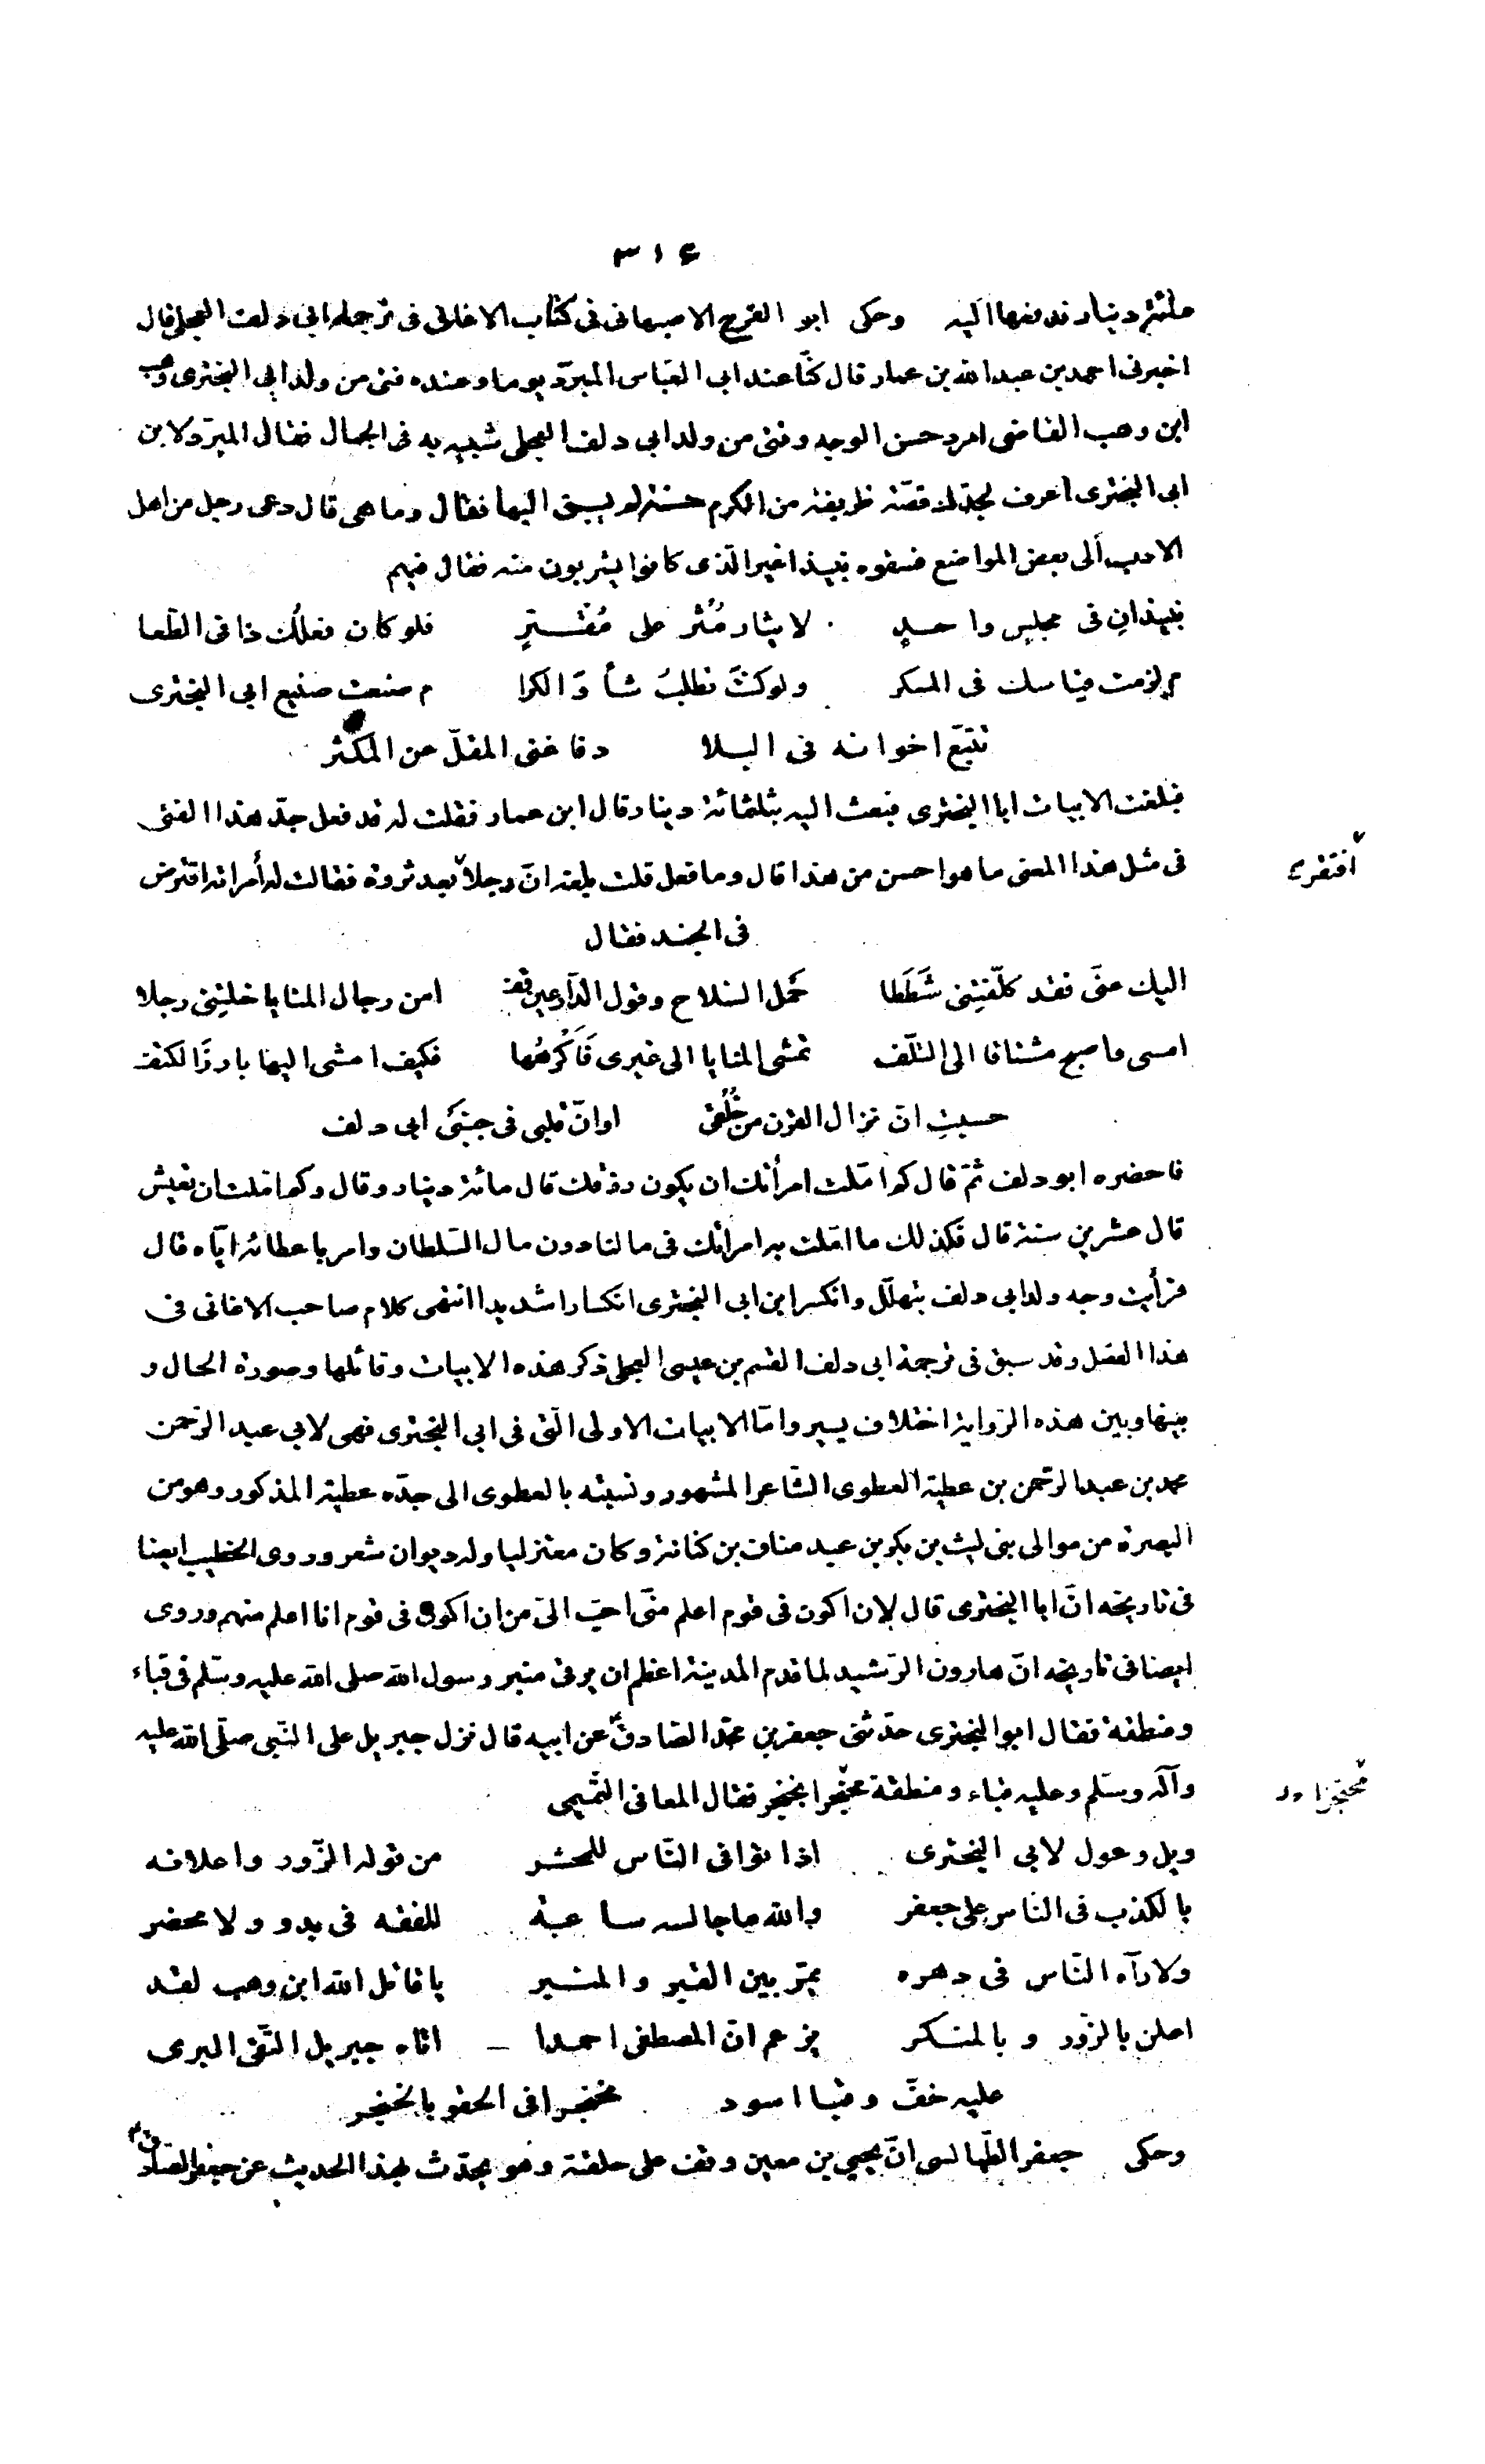 ٣١٤
مائتى دينار فدفعها اليه وحكى ابو الفرج الاصبهانى فى كتاب الاغانى فى ترجمة ابى دلف العجلى قال
اخبرنى احمد بن عبدالله بن عمار قال كنّا عند ابى العبّاس المبرّد يوما وعنده فتى من ولد ابى البخترى وهب
ابن وهب القاضى امرد حسن الوجه وفتى من ولد ابى دلف العجلى شبيه به فى الجمال فقال المبرّد لابن
ابى البخترى اعرف لجدّك قصّة ظريفة من الكرم حسنة لم يسبق اليها فقال وما هى قال دعى رجل من اهل
الادب الى بعض المواضع فسقوه نبيذا غير الّذى كانوا يشربون منه فقال فيهم
نبيذان فى مجلس واحد لايثار مُثر على مُقترٍ فلو كان فعلك ذا فى الطّعا
م لزمت قياسك فى المسكر ولو كنتَ تطلبُ شأوَ الكرا م صنعت صنيع ابى البخترى
تتبّع اخوانه فى البلا د فاغنى المقلّ عن المكثر
فبلغت الابيات ابا البخترى فبعث اليه بثلثمائة دينار قال ابن عمار فقلت له قد فعل جدّ هذا الفتى
فى مثل هذا المعنى ما هو احسن من هذا قال وما فعل قلت بلغه انّ رجلاً بعد ثروة فقالت له أمراته افترض
افتقر
فى الجند فقال
اليك عنّى فقد كلّفتنى شَطَطا حَمل السّلاح وقول الدّارعين قف امن رجال المنايا خلتِنى رجلا
امسى واصبح مشتاقا الى التّلف تمشى المنايا الى غيرى فَاَكْرَهُها فكيف امشى اليها بارزَ الكتف
حسبتِ انّ نزال القرن من خُلُقى او انّ قلبى فى جنبَىْ ابى دلف
فاحضره ابو دلف ثمّ قال كم امّلت امرأتك ان يكون رزقك قال مائة دينار وقال وكم امّلت ان تعيش
قال عشرين سنة قال فكذلك ما امّلت به امراتك فى مالنا دون مال السّلطان وامر باعطائه ايّاه قال
فرأيت وجه ولد ابى دلف يتهلّل وانكسر ابن ابى البخترى انكسارا شديدا انتهى كلام صاحب الاغانى فى
هذا الفصل وقد سبق فى ترجمة ابى دلف القسم بن عيسى العجلى ذكر هذه الابيات وقائلها وصورة الحال و
بينها وبين هذه الرّواية اختلاف يسير وامّا الابيات الاولى الّتى فى ابى البخترى فهى لابى عبد الرّحمن
محمد بن عبد الرّحمن بن عطية العطوى الشّاعر المشهور ونسبته بالعطوى الى جدّه عطية المذكور وهو من
البصرة من موالى بنى ليث بن بكر بن عبد مناف بن كنانة وكان معتزليا وله ديوان شعر وروى الخطيب ايضا
فى تاريخه انّ ابا البخترى قال لان اكون فى قوم اعلم منّى احبّ الىّ من ان اكون فى قوم انا اعلم منهم وروى
ايضا فى تاريخه انّ هارون الرّشيد لما قدم المدينة اعظم ان يرقى منبر رسول الله صلى الله عليه وسلّم فى قباء
ومنطقة فقال ابو البخترى حدّثنى جعفر بن محمّد الصّادق عن ابيه قال نزل جبريل على النّبى صلّى الله عليه
وآله وسلّم وعليه قباء ومنطقة محتجزا بخنجر فقال المعافى التّميمى
محتجزا
ويل وعول لابى البخترى اذا توافى النّاس للمحشر من قوله الزّور واعلانه
بالكذب فى النّاس على جعفر والله ما جالسه ساعة للفقه فى بدو ولا محضر
ولا رآه النّاس فى دهره يمرّ بين القبر والمنبر يا قاتل الله ابن وهب لقد
اعلن بالزّور وبالمنكر يزعم انّ المصطفى احمدا اتاه جبريل التّقى البرى
عليه خفّ وقبا اسود مخنجرا فى الحقو بالخنجر
وحكى جعفر الطّيالسى انّ يحيى بن معين وقف على حلقة وهو يحدّث بهذا الحديث عن جعفر الصّادق